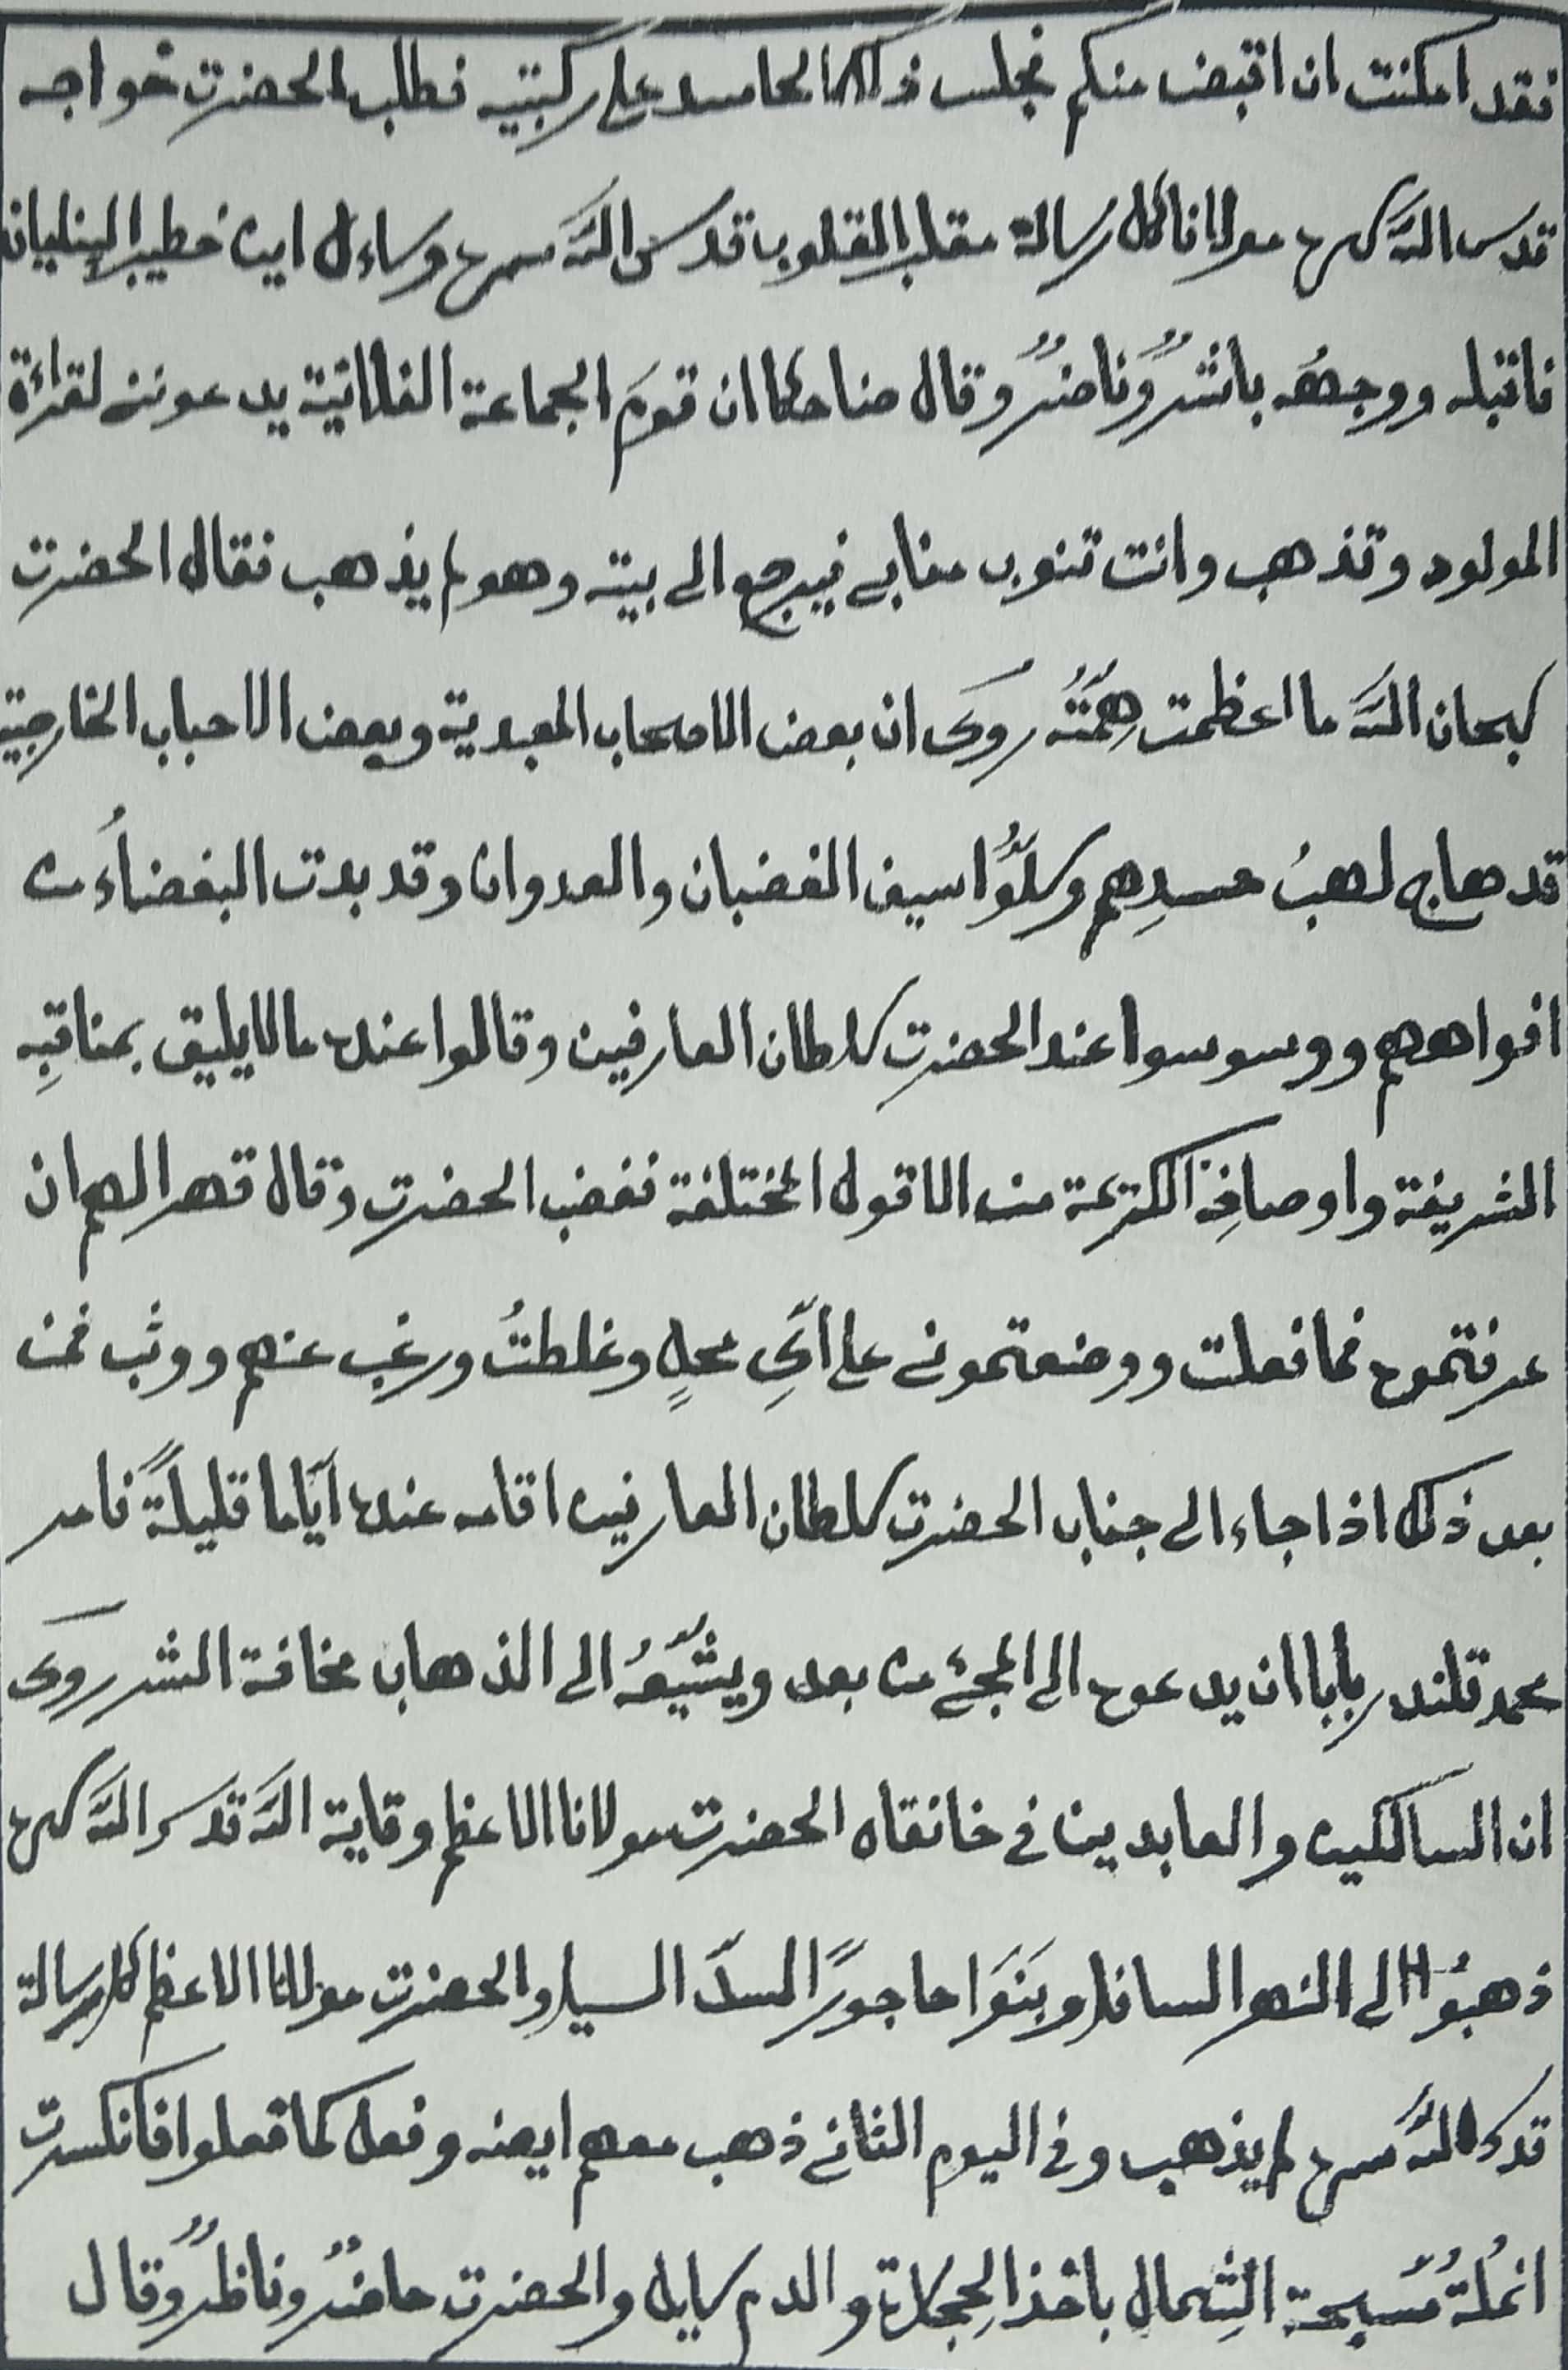 فقد امكنت ان اقبض منكم فجلس ذلك الحاسد على ركبتيه فطلب الحضرت خواجه
قدس الله سره مولانا كل رسالة مقلب القلوب قدس الله سره وساءل اين خطيب
فاقبله ووجهه باشرٌ وناضرٌ وقال ضاحكا ان قومَ الجماعة الفلانية يدعونني لقراءة
المولود وتذهب وانت تنوب منابي فيرجع الى بيته وهو لم يذهب فقال الحضرت
سبحان الله ما اعظمت هِمَّتُه روى ان بعض الاصحاب المعبدية وبعض الاحباب الخارجية
قد هاج لهبُ حسدِهم وسلّوا سيف الغضبان والعدوان وقد بدت البغضاءُ من
افواههم ووسوسوا عند الحضرت سلطان العارفين وقالوا عنده ما لا يليق بمناقبِه
الشريفة واوصافِه الكريمة من الاقول المختلفة فغضب الحضرت وقال قهرا لهم ان
عرفتموه فما فعلت ووضعتموني على اَيِ محلٍ وغلطتُ ورغب عنهم ووثب فمن
بعد ذلك اذا جاء الى جناب الحضرت سلطان العارفين اقامه عنده اَيّاما قليلةً فامر
محمد قلندر بابا ان يدعوه الى المجئ من بعد ويشيّعُه الى الذهاب مخافة الشر روى
ان السالكين والعابدين في خانقاه الحضرت مولانا الاعظم وقاية الله قدس الله سره
ذهبُوا الى النهر السافل وبَنَوَا حاجورًا لسدّ السيل والحضرت مولانا الاعظم كل رسالة
قدس اللّه سره لم يذهب وفي اليوم الثاني ذهب معهم ايضه وفعل كما فعلوا فانكسرت
انمُلةُ مُسبحة الشِمال باخذ الحِجارة والدم سايل والحضرت حاضرٌ وناظرٌ وقال